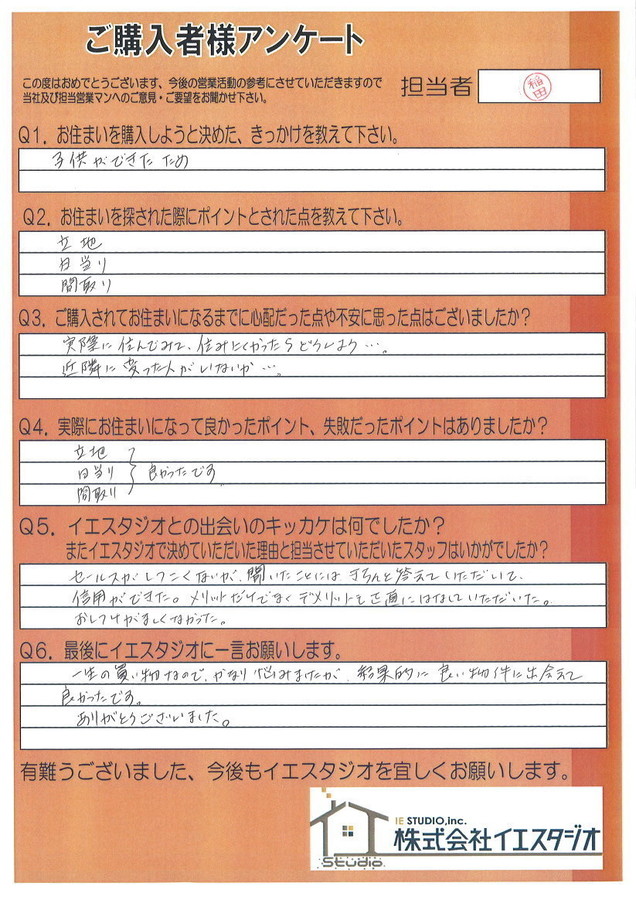 ご購入者様アンケート
この度はおめでとうございます、今後の営業活動の参考にさせていただきますので
当社及び担当営業マンへのご意見・ご要望をお聞かせ下さい。
担当者
稲田
Q1. お住まいを購入しようと決めた、きっかけを教えて下さい。
子供ができたため
Q2. お住まいを探された際にポイントとされた点を教えて下さい。
立地
日当り
間取り
Q3. ご購入されてお住まいになるまでに心配だった点や不安に思った点はございましたか?
実際に住んでみて、住みにくかったらどうしよう…。
近隣に変った人がいないか…。
Q4. 実際にお住まいになって良かったポイント、失敗だったポイントはありましたか?
立地
日当り 良かったです
間取り
Q5. イエスタジオとの出会いのキッカケは何でしたか?
またイエスタジオで決めていただいた理由と担当させていただいたスタッフはいかがでしたか?
セールスがしつこくないが、聞いたことにはきちんと答えていただいて、
信用ができた。メリットだけでなくデメリットも正直にはなしていただいた。
おしつけがましくなかった。
Q6. 最後にイエスタジオに一言お願いします。
一生の買い物なので、かなり悩みましたが、結果的に良い物件に出会えて
良かったです。
ありがとうございました。
有難うございました、今後もイエスタジオを宜しくお願いします。
IE STUDIO,inc.
株式会社イエスタジオ
Studio